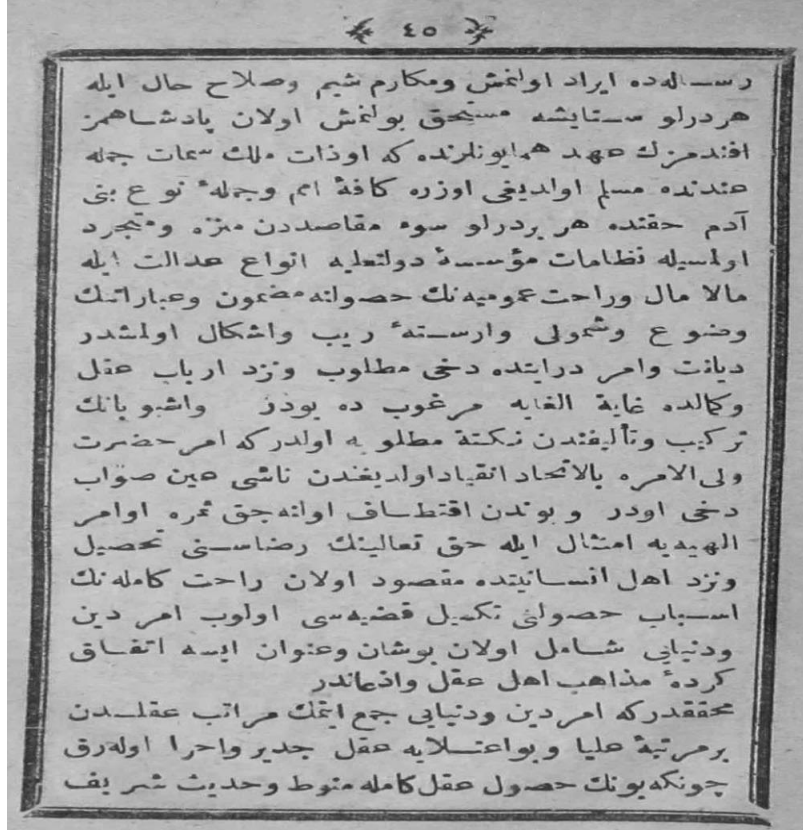 ٤٥
رساله‌ده ايراد اولنمش ومكارم شيم وصلاح حال ايله
هردرلو ستايشه مستحق بولنمش اولان پادشاهمز
افندمزك عهد همايونلرنده كه اوذات ملك سمات جمله
عندنده مسلم اولديغى اوزره كافهٔ امم وجملهٔ نوع بنى
آدم حقنده هر بردرلو سوء مقاصددن منزه ومتجرد
اولمسيله نظامات مؤسسهٔ دولتعليه انواع عدالت ايله
مالا مال وراحت عموميه‌نك حصولنه مضمون وعباراتنك
وضوع وشمولى وارستهٔ ريب واشكال اولمشدر
ديانت وامر درايتده دخى مطلوب ونزد ارباب عقل
وكمالده غاية الغايه مرغوب ده بودر واشبو يانك
تركيب وتأليفندن نكتهٔ مطلوبه اولدركه امر حضرت
ولى الامره بالاتحاد انقياد اولديغندن ناشى عين صواب
دخى اودر وبوندن اقتطاف اولنه‌جق ثمره اوامر
الهيه‌يه امتثال ايله حق تعالينك رضاسنى تحصيل
ونزد اهل انسانيتده مقصود اولان راحت كامله‌نك
اسباب حصولنى تكميل قضيه‌سى اولوب امر دين
ودنيايى شامل اولان بوشان وعنوان ايسه اتفاق
كردهٔ مذاهب اهل عقل واذعاندر
محققدركه امر دين ودنيايى جمع ايتمك مراتب عقلدن
برمرتبهٔ عليا وبواعتلايه عقل جدير واحرا اوله‌رق
چونكه بونك حصول عقل كامله منوط وحديث شريف